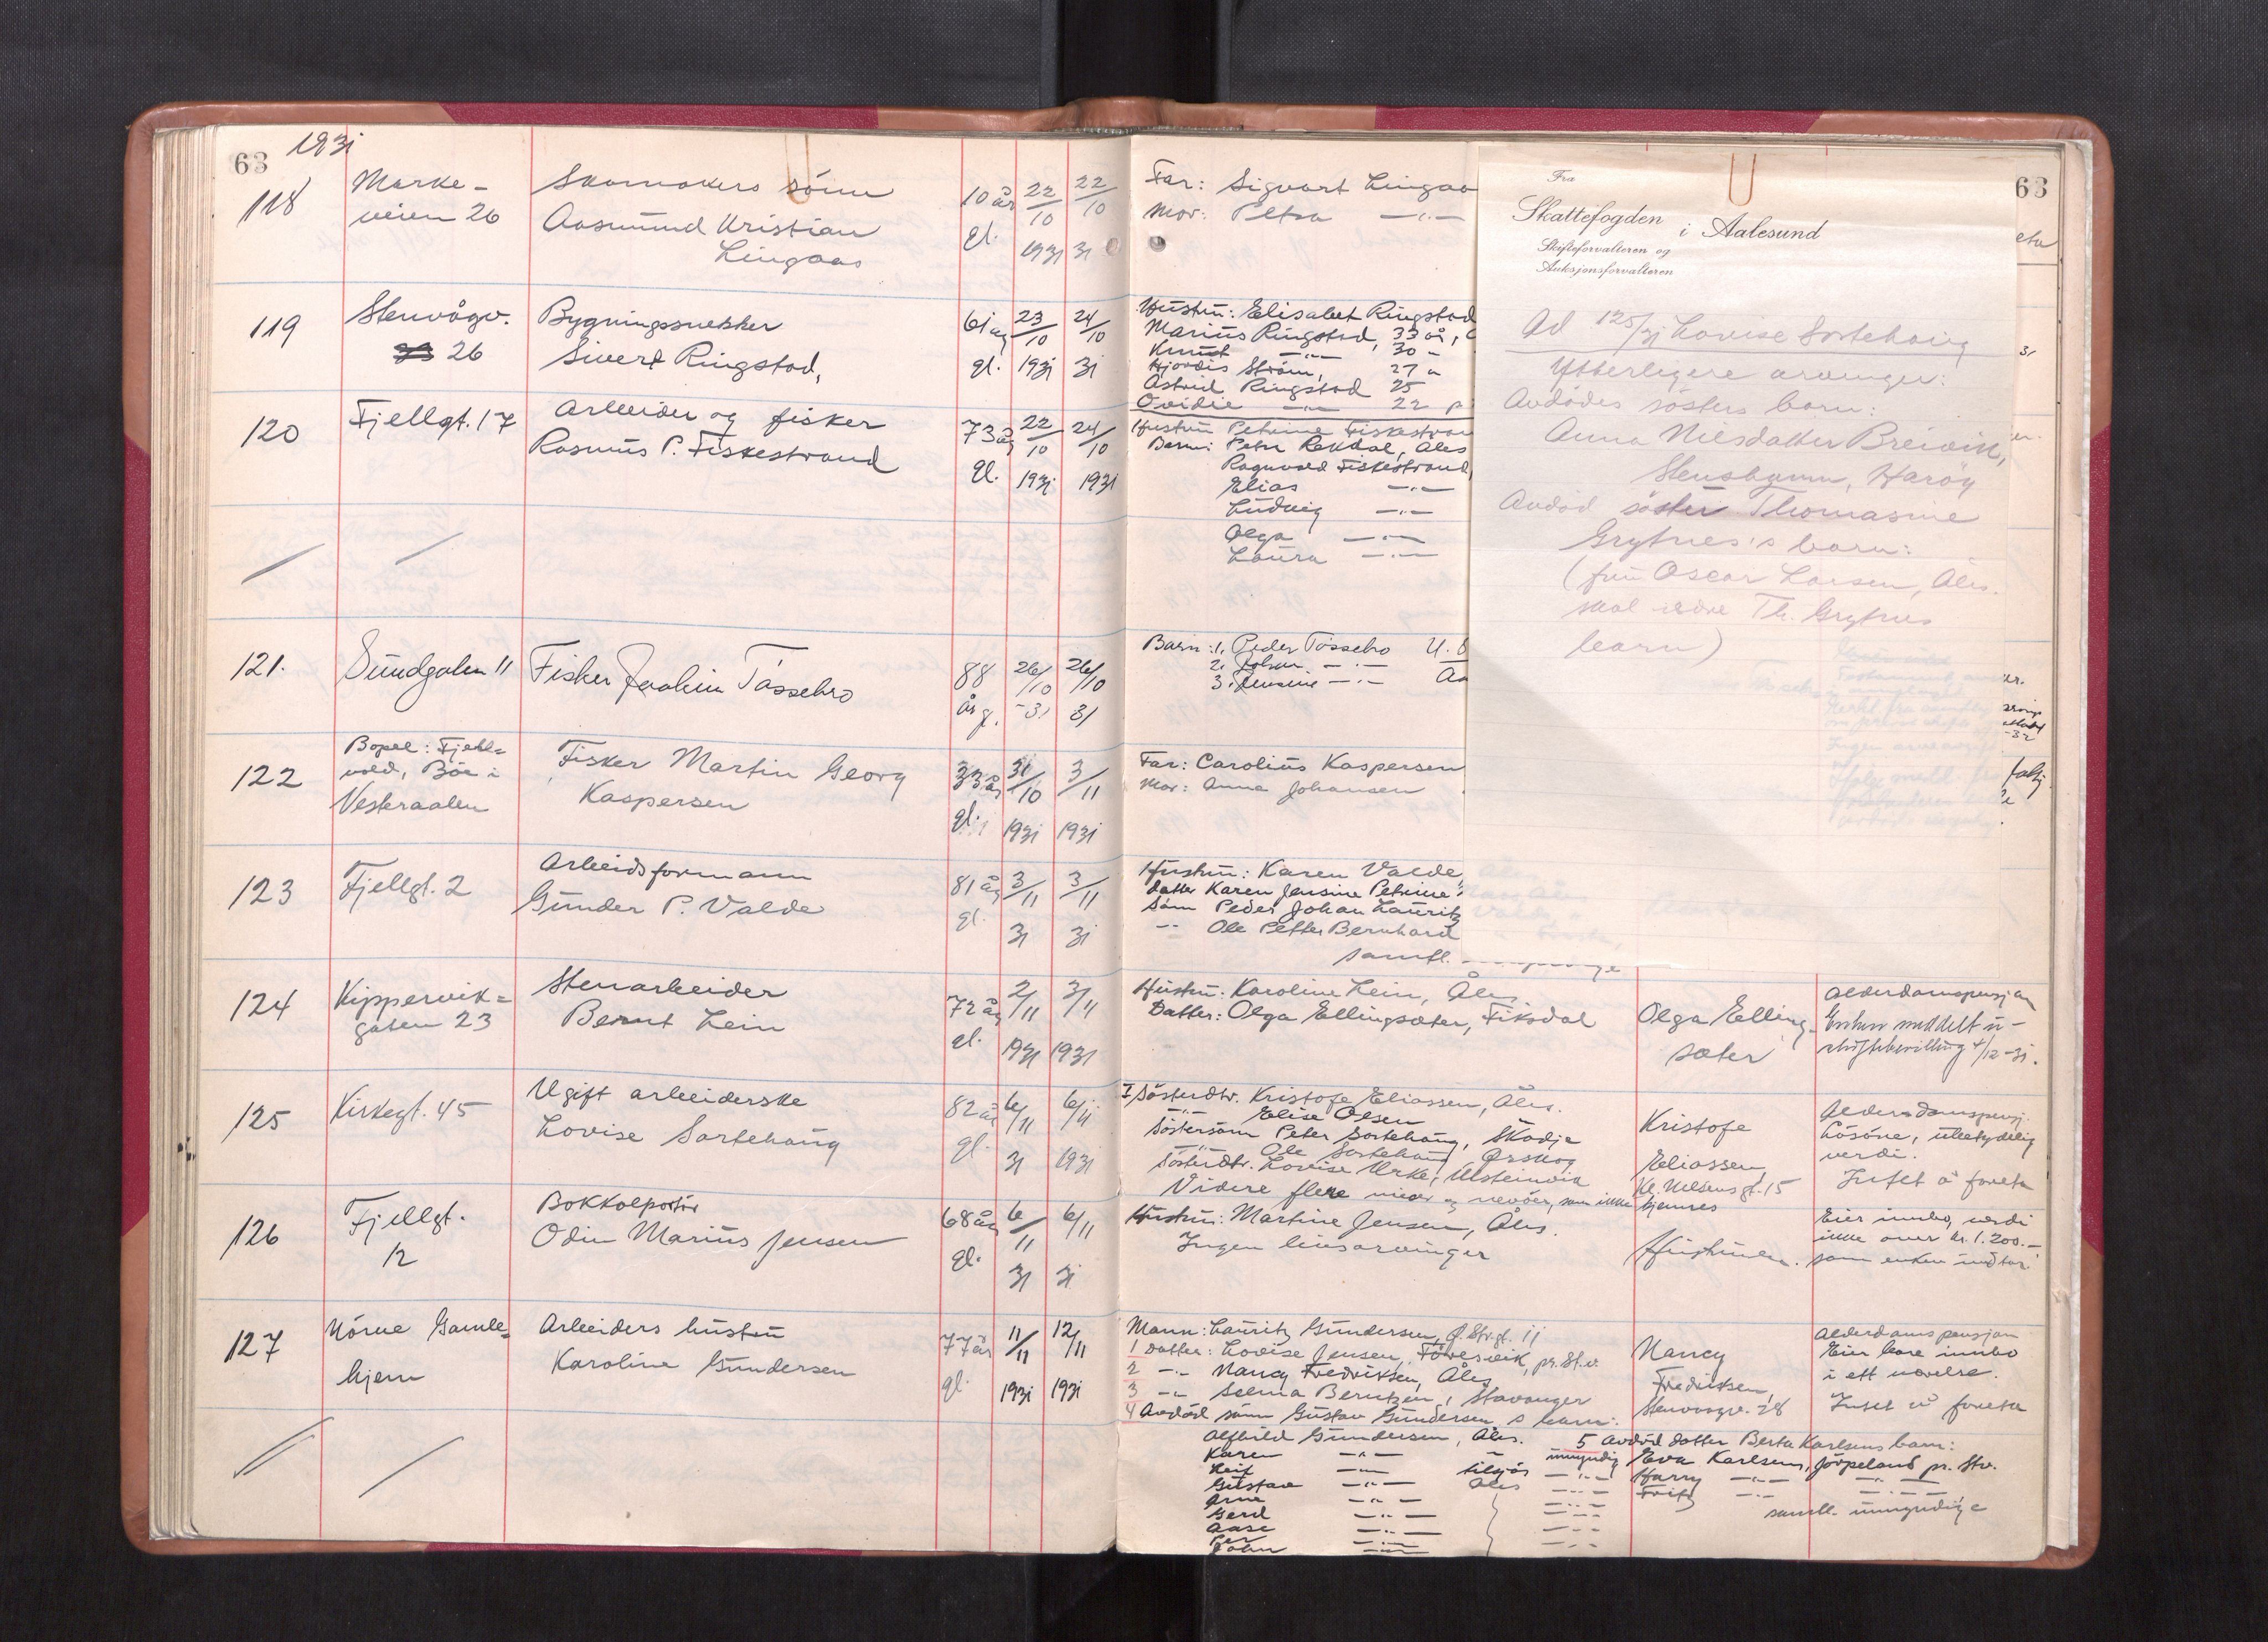 63 1931
118
Marke-
veien 26
Skomakers sönn
Aasmund Kristian
Lingaas
10 år
gl.
22/10
1931
22/10
31
Far: Sigvart Lingaa
Mor: Petra —"—
119
Stenvågv.
26
Bygningssnekker
Sivert Ringstad,
61 år
gl.
23/10
1931
24/10
31
Hustru: Elisabet Ringstad
Marius Ringstad, 33 år,
Knut —"— 30 -
Hjördis Ström, 27 "
Astrid Ringstad 25
Ovidie —"— 22
120
Fjellgt. 17
Arbeider og fisker
Rasmus P. Fiskestrand
73 år
gl.
22/10
1931
24/10
1931
Hustru Petrine Fiskestran
Barn: Petra Rekdal, Ales
Ragnvald Fiskestrand,
Elias —"—
Ludvig —"—
Olga —"—
Laura —"—
121.
Sundgaten 11
Fisker Joakim Tässebro
88
år g.
26/10
-31
26/10
31
Barn: 1. Peder Tössebro U.
2. Johan —"—
3. Jensine —"—
122
Bopel: Fjell=
vold, Böe i
Vesteraalen
Fisker Martin Georg
Kaspersen
33 år
gl.
31/10
1931
3/11
1931
Far: Carolius Kaspersen
Mor: Anna Johansen
123
Fjellgt. 2
Arbeidsformann
Gunder P. Valde
81 år
gl.
3/11
31
3/11
31
Hustru: Karen Valde,
datter Karen Jensine Petrine
Sönn Peder Johan Lauritz
-"- Ole Petter Bernhard
samtl.
124
Kippervik=
gaten 23
Stenarbeider
Bernt Lein
72 år
gl.
2/11
1931
3/11
1931
Hustru: Karoline Lein, Åles.
Datter: Olga Ellingsæter, Fiksdal
Olga Elling-
sæter
Alderdomspensjon
Enken meddelt u-
skiftebevilling 4/12-31.
125
Kirkegt. 45
Ugift arbeiderske
Lovise Sortehaug
82 år
gl.
6/11
31
6/11
1931
I Sösterdtr. Kristofe Eliassen, Åles.
—"— Elise Olsen
Söstersönn Peter Sortehaug, Skodje
—"— Ole Sortehaug Ørskog
Sösterdtr. Lovise Urke, Ulsteinvik
Videre flere niecer og nevöer, som ikke kjennes
Kristofe
Eliassen
Kl. Nilsens gt. 15
Alderdomspensj.
Lösöre, ubetydelig
verdi.
Intet å foreta
126
Fjellgt.
12
Bokkolportör
Odin Marius Jensen
68 år
gl.
6/11
31
6/11
31
Hustru: Martine Jensen, Åles.
Ingen livsarvinger
Hustruen.
Eier innbo, verdi
ikke over kr. 1.200.-
som enken indtar
127
Nörve Gamle=
hjem
Arbeiders hustru
Karoline Gundersen
77 år
gl.
11/11
1931
12/11
1931
Mann: Lauritz Gundersen, Ø. Str.gt. 11
1 Datter: Lovise Jensen, Förresvik, pr. St.v.
2 -"- Nancy Fredriksen, Åles
3 -"- Selma Berntzen, Stavanger
4 Avdöd sönn Gustav Gundersen s barn:
Nancy
Fredriksen,
Stenvaagv. 28
Alderdomspensjon
Eier bare innbo
i ett værelse.
Intet å foreta
Alfhild Gundersen, Åles.
Karen —"— - umyndig
Leif —"— tilsjös —"—
Gustav —"— Åles —"—
Arne —"— —"—
Gerd —"— —"—
Aase —"— —"—
Per —"— —"—
John —"— —"—
5 Avdöd datter Berta Karlsens barn:
Eva Karlsen, Jörpeland pr. Stv.
Harry —"— —"—
Fritz —"— —"—
samtl. umyndige
63
Fra
Skattefogden i Aalesund
Skifteforvalteren og
Auksjonsforvalteren
Ad 125/31 Lovise Sortehaug
Ytterligere arvinger:
Avdödes sösters barn:
Anna Nilsdatter Breivik,
Stenshamn, Haröy
Avdöd söster Thomasine
Grytnes's barn:
(fru Oscar Larsen, Åles.
skal være Th. Grytnes
barn)